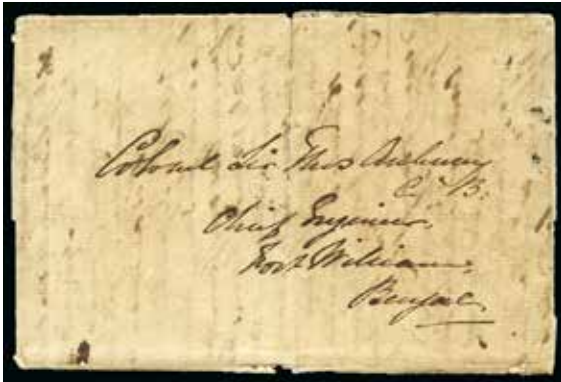 Colonel Sir Thos Anburey
C. B.
Chief Engineer
Fort William
Bengal